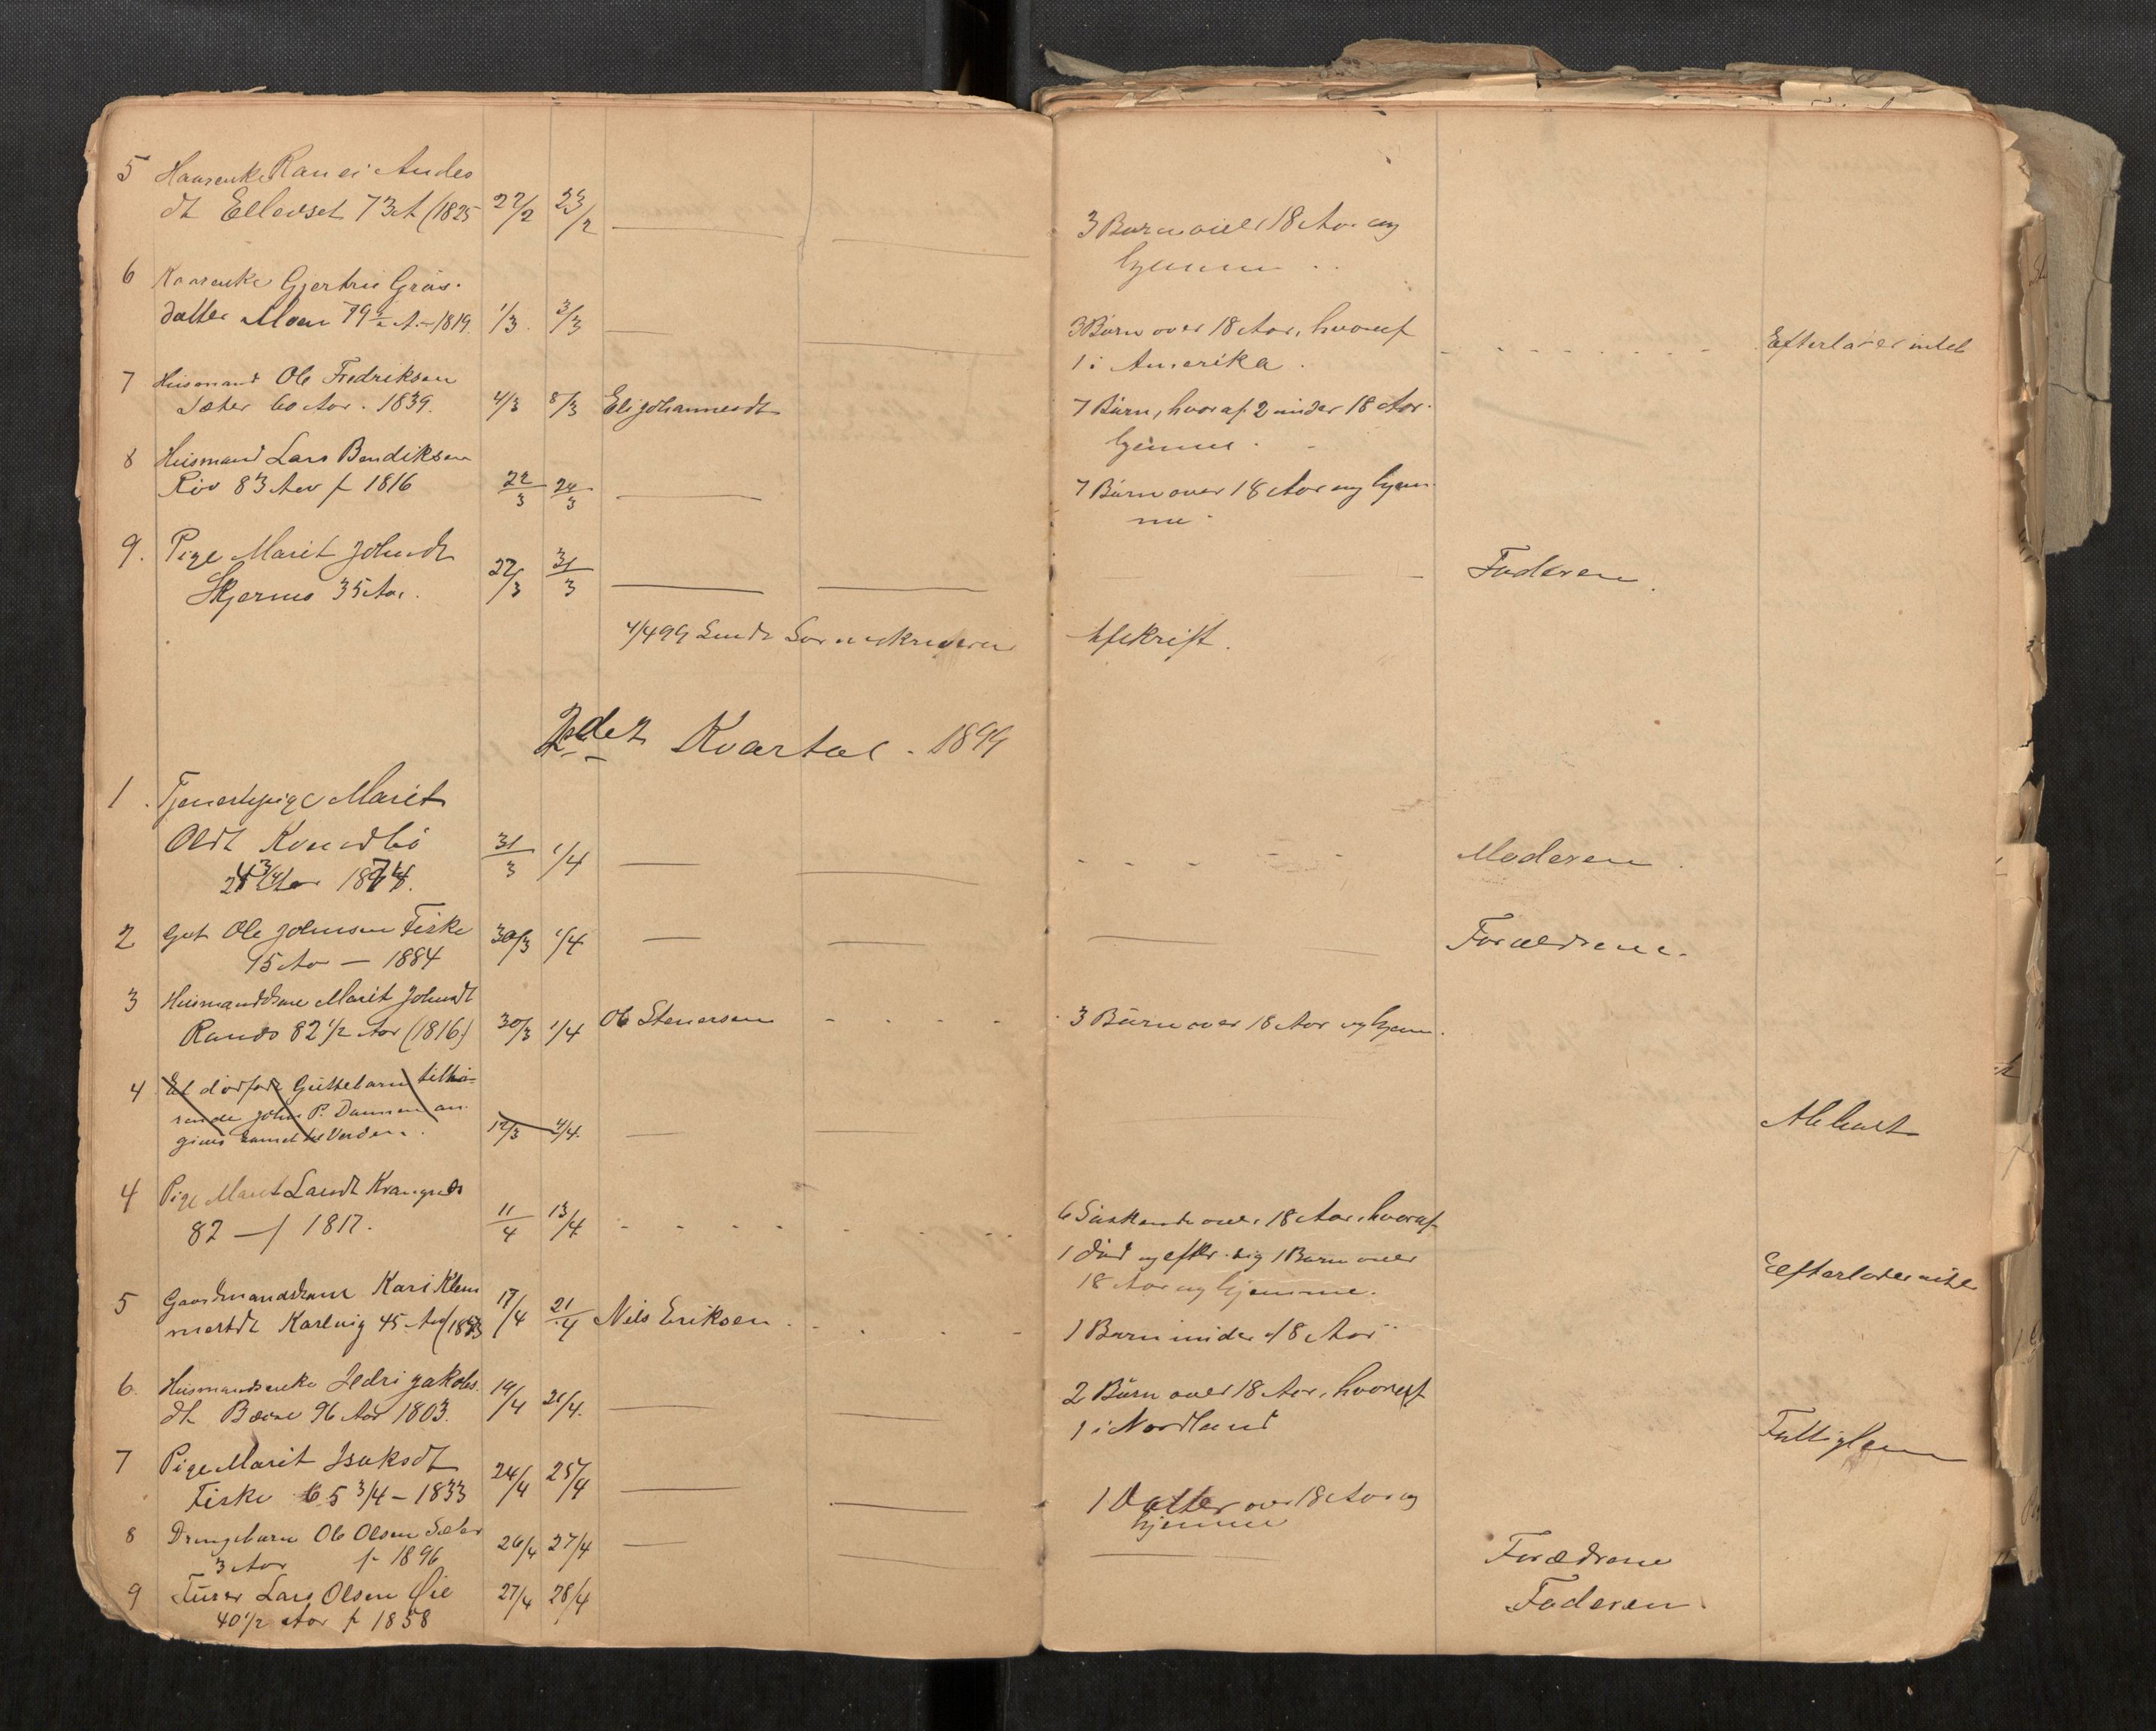 5 Ranei Anders
dt Ellevset 73 A (1825 22/2 23/2
3 Børn over 18 Aar og
hjemme
6 Gjertru
datter Moen 79 A. - 1819. 1/3 3/3
3 Børn over 18 Aar, hvoraf Efterlader intet
1 i Amerika.
7 Husmand Ole Fredriksen
Sæter 60 Aar. 1839. 4/3 8/3 Eli Johannesdt 7 Børn, hvoraf 2 under 18 Aar.
hjemme.
8 Husmand Lars Bendiksen
Röv 83 Aar f 1816 22/3 24/3 7 Børn over 18 Aar og hjem-
me.
9. Pige Marit Johnsdt
35 Aar. 27/3 31/3 Faderen.
4/4 99 Sendt Sorenskriveren Afskrift.
2det Kvartal. 1899
1. Tjenestepige Marit
Olsdt 31/3 1/4 Moderen.
2 Gut Ole Johnsen Fiske 30/3 1/4 Forældrene.
15 Aar — 1884
3 Marit Johnsdt
Rands 82 1/2 Aar (1816) 30/3 1/4 Ole Stenersen 3 Børn over 18 Aar og hjem.
4 Et dødfødt Guttebarn tilhø-
rende John P.
17/3 4/4.
4 Pige Marit Larsdt
82 — f 1817. 11/4 13/4 6 Søskende over 18 Aar, hvoraf
1 død og efterl. sig 1 Barn over
18 Aar og hjemme. Efterlader intet
5 Gaardmandskone Kari Klem
metsdt 45 Aar 17/4 21/4 Nils Eriksen. 1 Barn under 18 Aar
6. Husmandsenke Sedri Jakobs.
dt Bæv 96 Aar 1803. 19/4 21/4. 2 Børn over 18 Aar, hvoraf
1 i Nordland Fattiglem
7 Pige Marit Isaksdt
Fiske 65 3/4 - 1833 24/4 25/4 1 Datter over 18 Aar og
hjemme
8 Drengebarn Ole Olsen Sæter
3 Aar f. 1896 26/4 27/4 Forældrene
9 Lars Olsen Øie 27/4 28/4 Faderen.
40 1/2 Aar f 1858